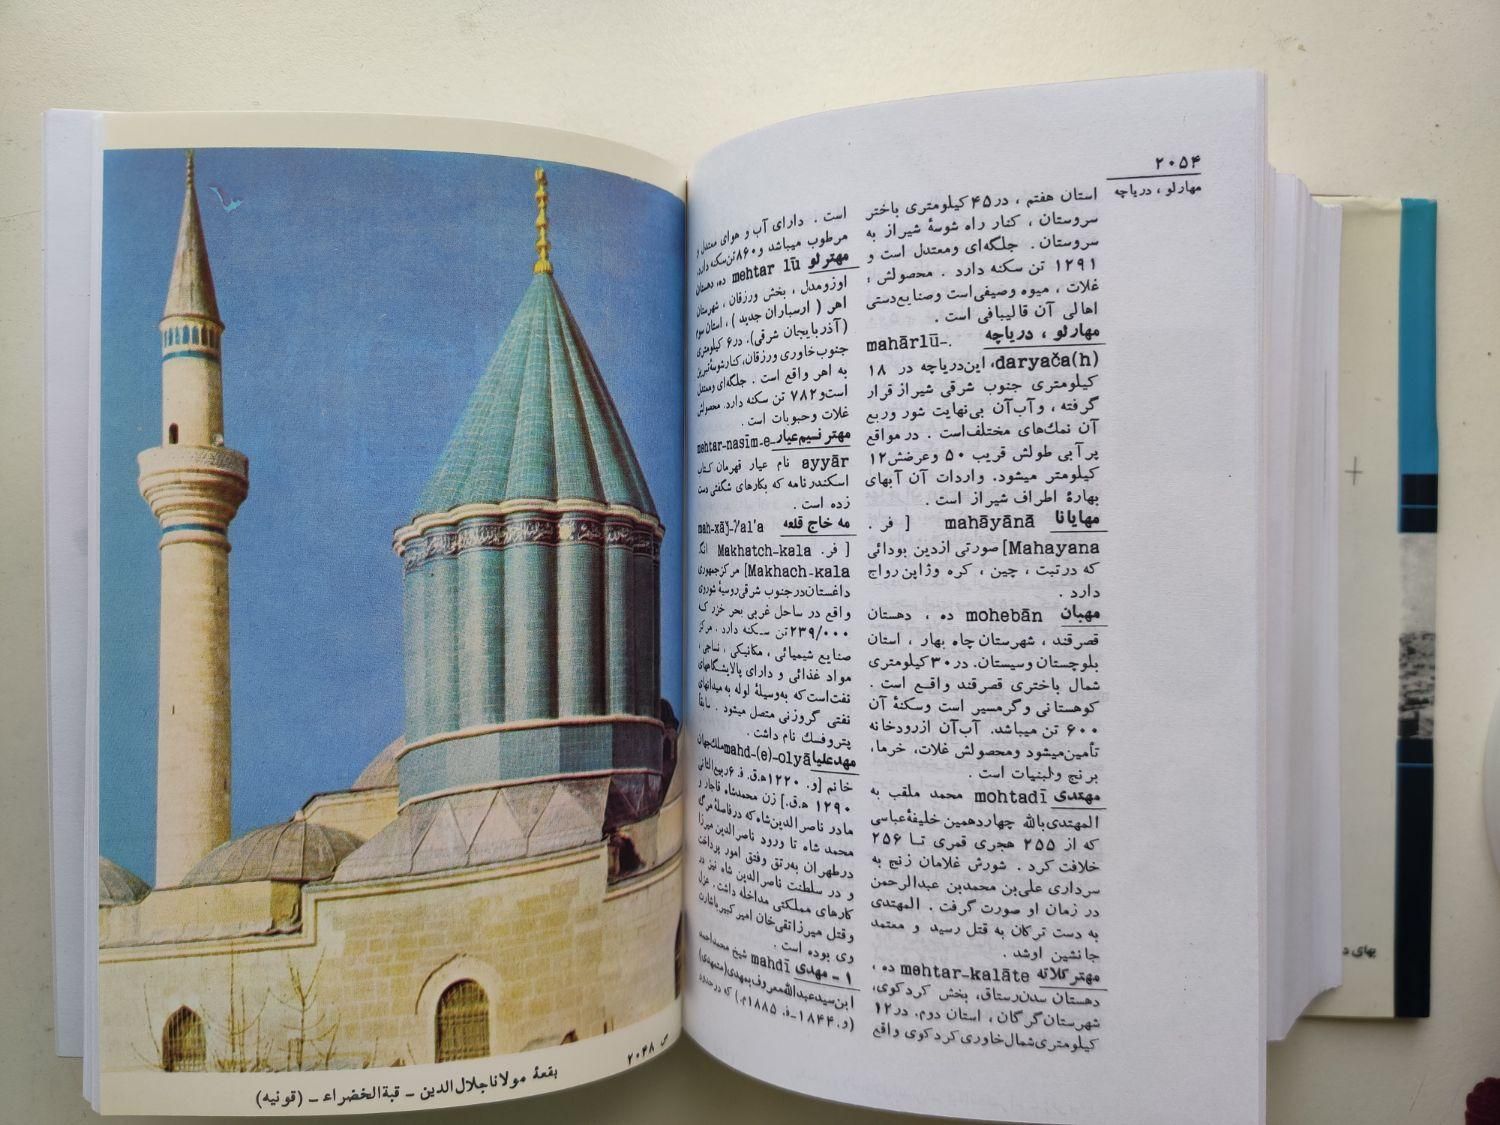 ۲۰۵۴
مهارلو ، دریاچه
استان هفتم ، در ۴۵ کیلومتری باختر
سروستان ، کنار راه شوسهٔ شیراز به
سروستان . جلگه‌ای ومعتدل است و
۱۲۹۱ تن سکنه دارد . محصولش :
غلات ، میوه وصیفی‌است وصنایع‌دستی
اهالی آن قالیبافی است .
مهارلو ، دریاچه mahārlū-.
daryača(h)، این‌دریاچه در ۱۸
کیلومتری جنوب شرقی شیراز قرار
گرفته ، وآب‌آن بی‌نهایت شور وربع
آن نمك‌های مختلف‌است . در مواقع
پرآبی طولش قریب ۵۰ وعرضش۱۲
کیلومتر میشود. واردات آن آبهای
بهارهٔ اطراف شیراز است .
مهایانا mahāyānā [ فر .
Mahayana] صورتی ازدین بودائی
که درتبت ، چین ، کره وژاپن رواج
دارد .
مهبان mohebān ده ، دهستان
قصرقند ، شهرستان چاه بهار ، استان
بلوچستان وسیستان. در۳۰کیلومتری
شمال باختری قصرقند واقع است .
کوهستانی وگرمسیر است وسکنهٔ آن
۶۰۰ تن میباشد. آب‌آن ازرودخانه
تأمین‌میشود ومحصولش غلات، خرما،
برنج ولبنیات است .
مهتدی mohtadī محمد ملقب به
المهتدی‌بالله چهاردهمین خلیفهٔ‌عباسی
که از ۲۵۵ هجری قمری تا ۲۵۶
خلافت کرد . شورش غلامان زنج به
سرداری علی‌بن محمدبن عبدالرحمن
در زمان او صورت گرفت . المهتدی
به دست ترکان به قتل رسید و معتمد
جانشین اوشد .
مهترکلاته mehtar-kalāte ده ،
دهستان سدن‌رستاق، بخش کردکوی،
شهرستان‌گرگان ، استان دوم. در۱۲
کیلومتری‌شمال‌خاوری‌کردکوی واقع
است . دارای آب و هوای معتدل و
مرطوب میباشد و ۸۶۰تن‌سکنه دارد.
مهترلو mehtar lū ده، دهستان
اوزومدل ، بخش ورزقان ، شهرستان
اهر ( ارسباران جدید ) ، استان سوم
(آذربایجان شرقی). در۶ کیلومتری
جنوب‌خاوری ورزقان،کنارشوسهٔ‌تبریز
به اهر واقع است . جلگه‌ای ومعتدل
است‌و۷۸۲ تن سکنه دارد. محصولش
غلات وحبوبات است .
مهتر نسیم‌عیار mehtar-nasīm-e-
ayyār نام عیار قهرمان کتاب
اسکندرنامه که بکارهای شگفتی دست
زده است .
مه خاج قلعه mah-xāǰ-γal'a
[ فر. Makhatch-kala انگ
Makhach-kala] مرکزجمهوری
داغستان‌درجنوب شرقی‌روسیهٔ شوروی
واقع در ساحل غربی بحر خزر که
۲۳۹/۰۰۰ تن سکنه دارد . مرکز
صنایع شیمیائی ، مکانیکی ، نساجی ،
مواد غذائی و دارای پالایشگاههای
نفت‌است‌که به‌وسیلهٔ لوله به میدانهای
نفتی گروزنی متصل میشود . سابقاً
پتروفسك نام داشت .
مهدعلیا mahd-(e)-olyā ملك‌جهان
خانم [و. ۱۲۲۰ه‌.ق. ف. ۶ربیع‌الثانی
۱۲۹۰ ه‌.ق.] زن محمدشاه قاجار و
مادر ناصرالدین‌شاه که درفاصلهٔ مرگ
محمد شاه تا ورود ناصرالدین میرزا
درطهران به‌رتق وفتق امور پرداخت
و در سلطنت ناصرالدین شاه نیز در
کارهای مملکتی مداخله داشت . عزل
وقتل میرزاتقی‌خان امیرکبیرباشارت
وی بوده است .
۱ - مهدی mahdī شیخ محمداحمد
ابن‌سیدعبدالله‌معروف‌بمهدی(متمهدی)
(و. ۱۸۴۴-ف. ۱۸۸۵م.) که درحدود
ص ۲۰۴۸
بقعهٔ مولاناجلال‌الدین - قبةالخضراء - (قونیه)
بهای د